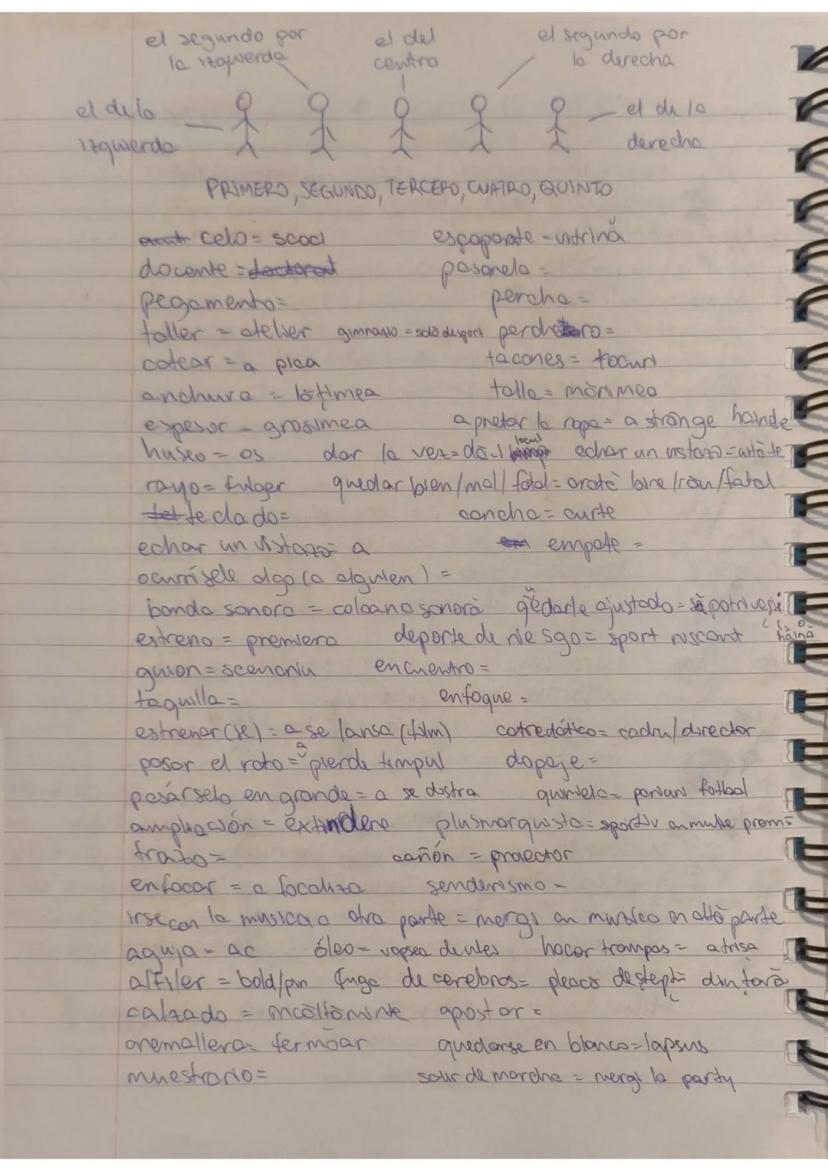 el segundo por el del el segundo por
la izquierda centro la derecha
el de la el de la
izquierda derecha
PRIMERO, SEGUNDO, TERCERO, CUATRO, QUINTO
celo = scoci escaparate - vitrină
docente = doctorat pasarela =
pegamento = percha =
taller = atelier gimnasio = sală de sport perchero =
cotear = a pica tacones = tocuri
anchura = lățimea talla = mărimea
espesor - grosimea apretar la ropa = a strânge hainele
hueso = os dar la vez = da-i locul echar un vistazo = uită-te
rayo = fulger quedar bien/mal/fatal = arată bine/rău/fatal
teclado = cancha = curte
echar un vistazo = a empate =
ocurrísele algo (a alguien) =
banda sonora = coloană sonoră qüedarle ajustado = să potrivești
estreno = premiera deporte de riesgo = sport riscant haină
guion = scenariu encuentro =
taquilla = enfoque =
estrenar(se) = a se lansa (film) catedrático = cadru/director
pasar el rato = a pierde timpul dopaje =
pasárselo en grande = a se distra quiniela = pariuri fotbal
ampliación = extindere plusmarquista = sportiv cu multe premii
trazo = cañón = proiector
enfocar = a focaliza senderismo -
irse con la musica a otra parte = mergi cu muzica in altă parte
aguja = ac óleo - vopsea de ulei hacer trampas = a trișa
alfiler = bold/pin fuga de cerebros = pleacă deștepții din țară
calzado = incăltăminte apostar =
cremallera = fermoar quedarse en blanco = lapsus
muestrario = salir de marcha = mergi la party